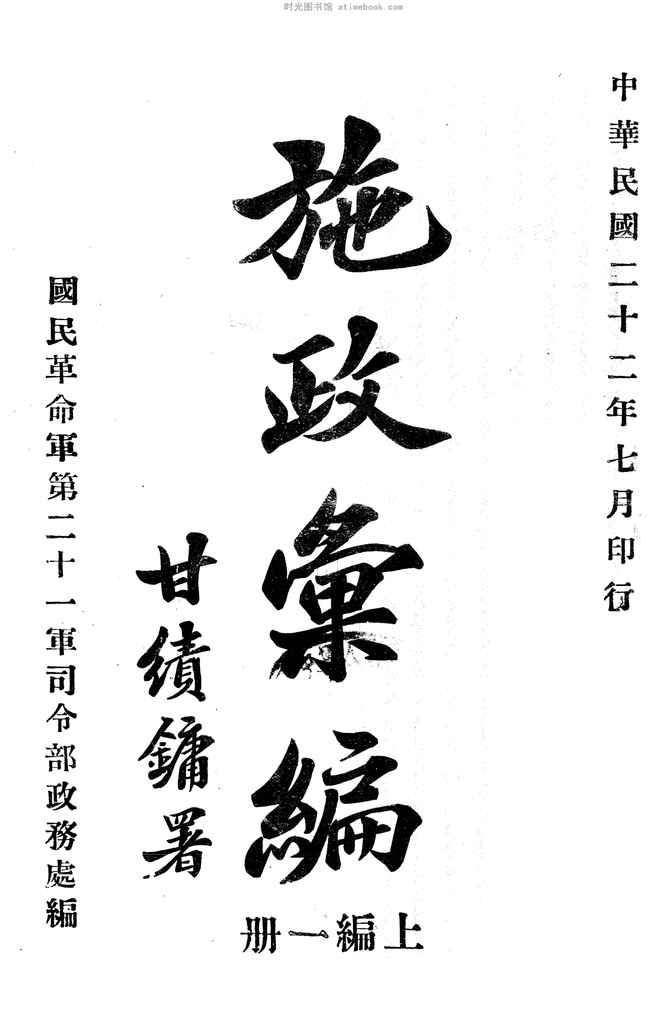 时光图书馆 atimebook.com
中華民國二十二年七月印行
施政彙編
上編一册
甘績鏞署
國民革命軍第二十一軍司令部政務處編